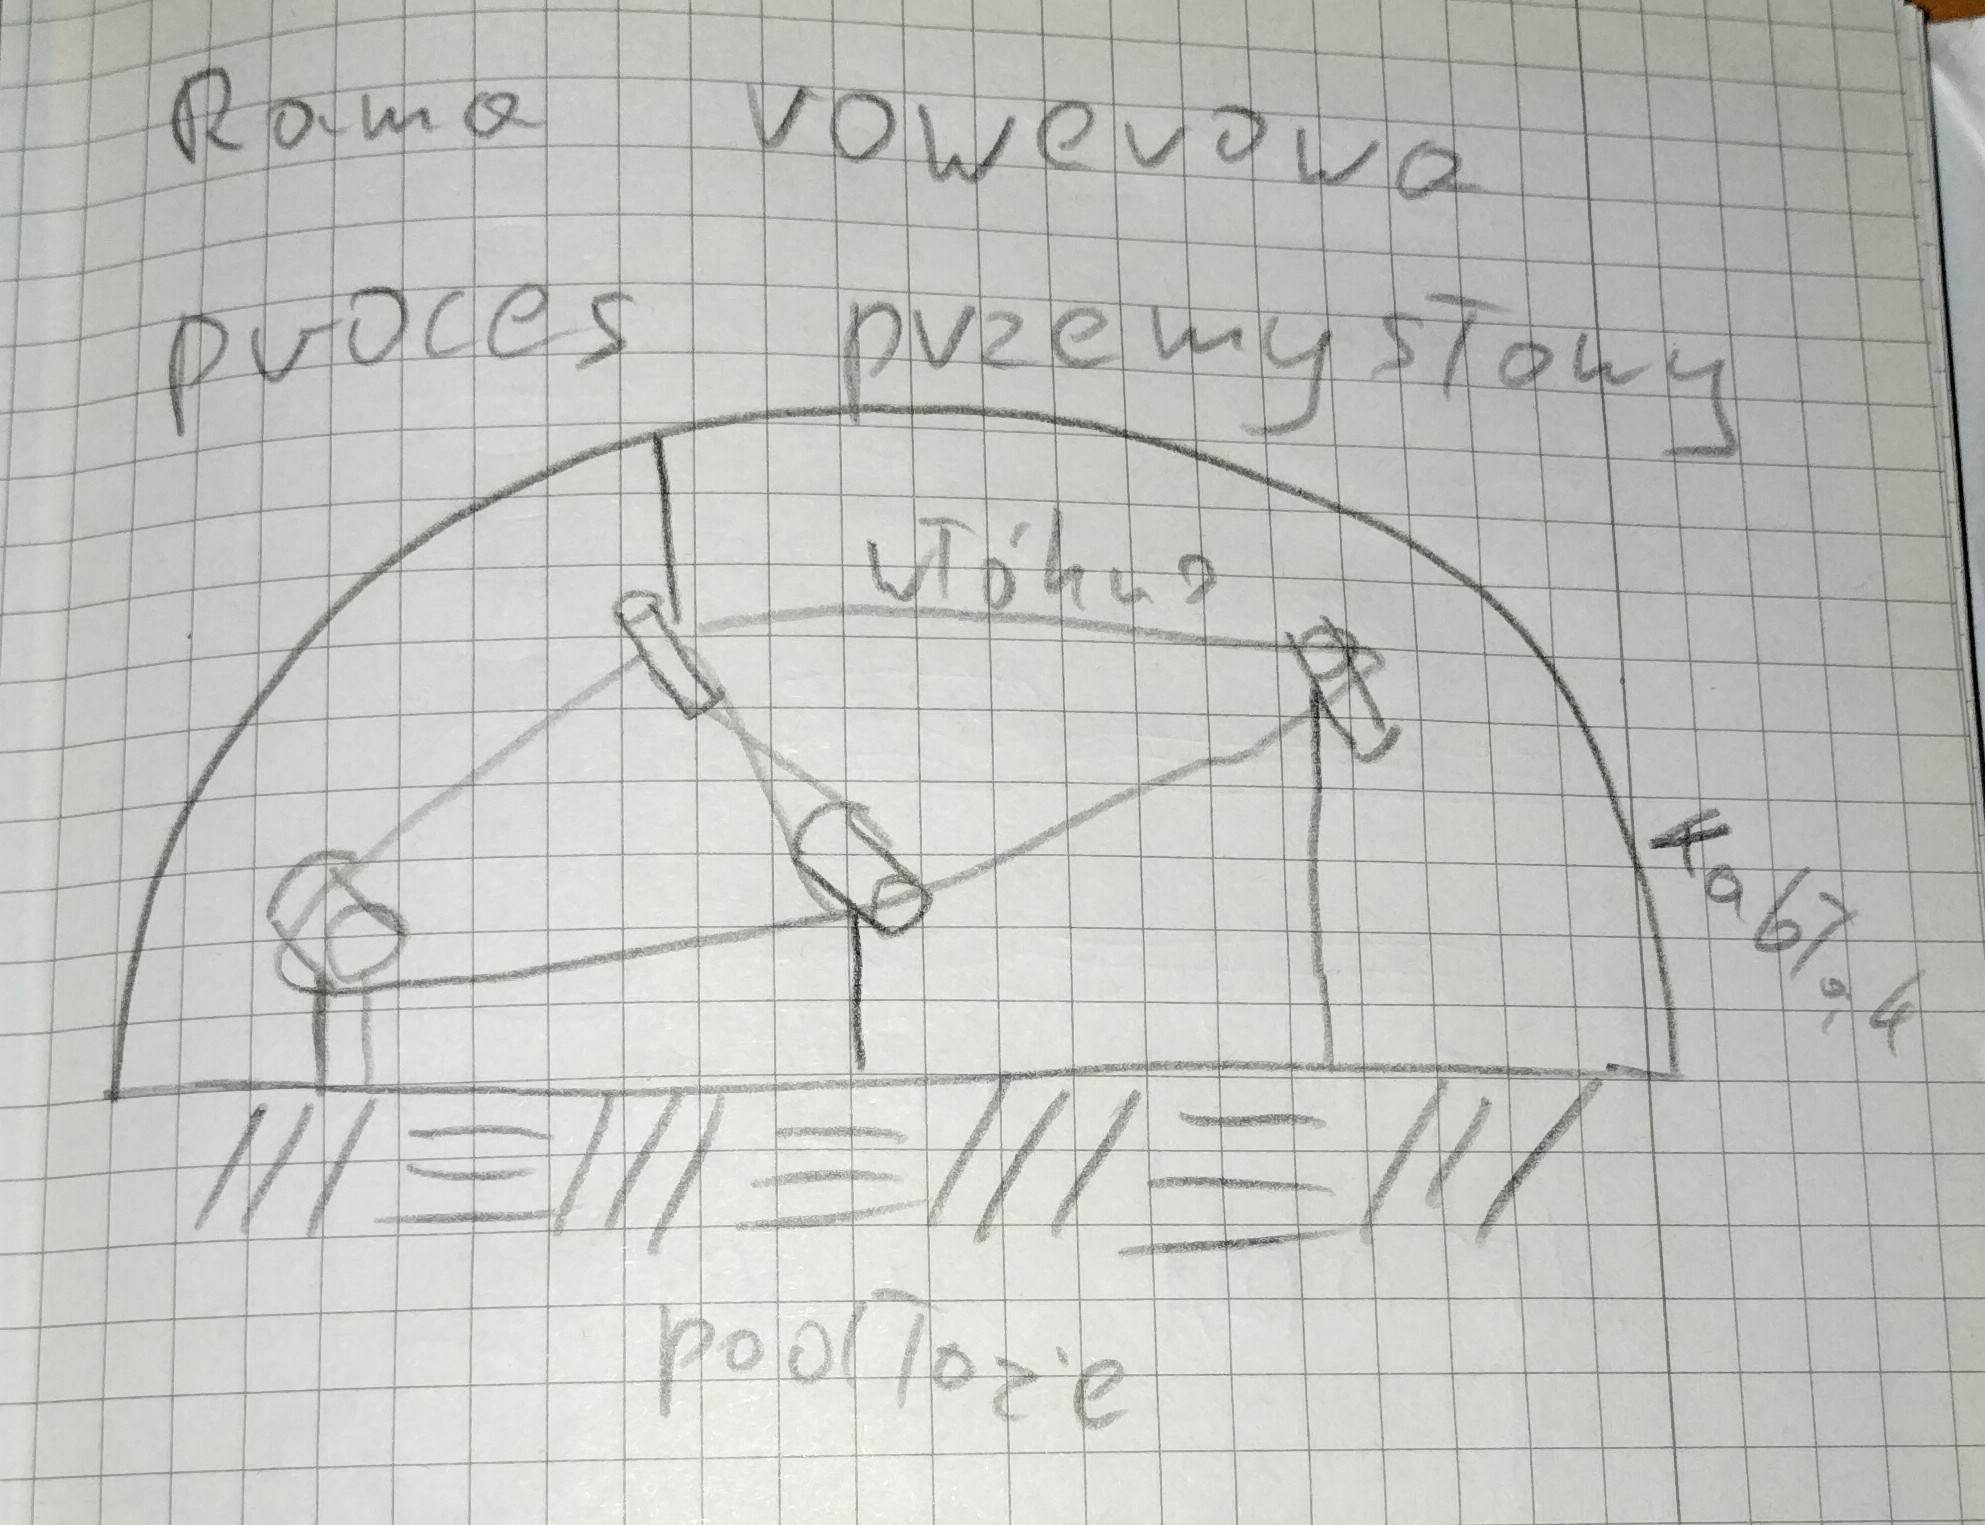 Rama rowerowa
proces przemysłowy
włókno
podłoże